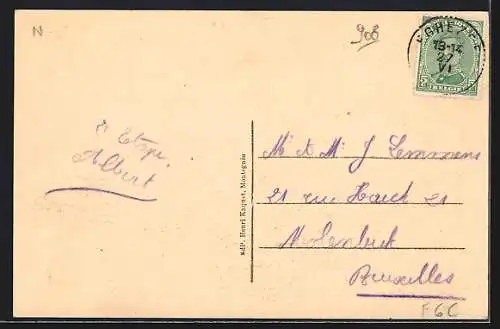 N
EGHEZÉE
13-14
27
VI
5
BELGIË
Albert
Édit. Henri Kaquet, Montegnée
Mr & Me J Lemmens
21 rue Houck 21
Molenbeek
Bruxelles
F6C